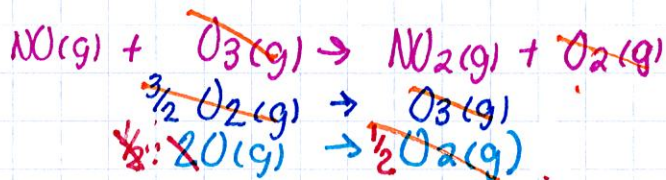 NO(g) + O3(g) → NO2(g) + O2(g)
3/2 O2(g) → O3(g)
1/2: 2O(g) → 1/2 O2(g)